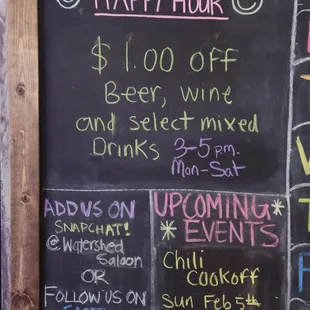 HAPPY HOUR
$1.00 OFF
Beer, wine
and select mixed
Drinks 3-5 pm.
Mon-Sat
ADD US ON
SNAPCHAT!
@Watershed
Saloon
OR
FOLLOW US ON
UPCOMING
EVENTS
Chili
Cookoff
Sun Feb 5th